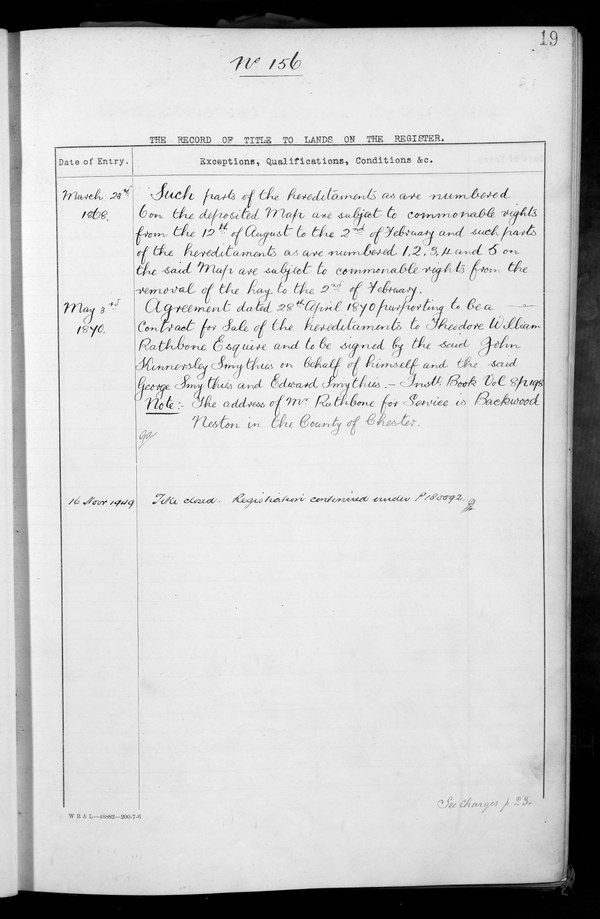 19
No 156
THE RECORD OF TITLE TO LANDS ON THE REGISTER.
Date of Entry.
Exceptions, Qualifications, Conditions &c.
March 28th
1868.
Such parts of the hereditaments as are numbered
6 on the deposited Map are subject to commonable rights
from the 12th of August to the 2nd of February and such parts
of the hereditaments as are numbered 1, 2, 3, 4 and 5 on
the said Map are subject to commonable rights from the
removal of the hay to the 2nd of February.
May 3rd
1870.
Agreement dated 28th April 1870 purporting to be a
Contract for Sale of the hereditaments to Theodore William
Rathbone Esquire and to be signed by the said John
Kinnersley Smythies on behalf of himself and the said
George Smythies and Edward Smythies. – Inst: Book Vol 8/p 198
Note:- The address of Mr Rathbone for Service is Backwood
Neston in the County of Chester.
16 Novr 1949
Title closed. Registration continued under P185092.
See Charges p 23.